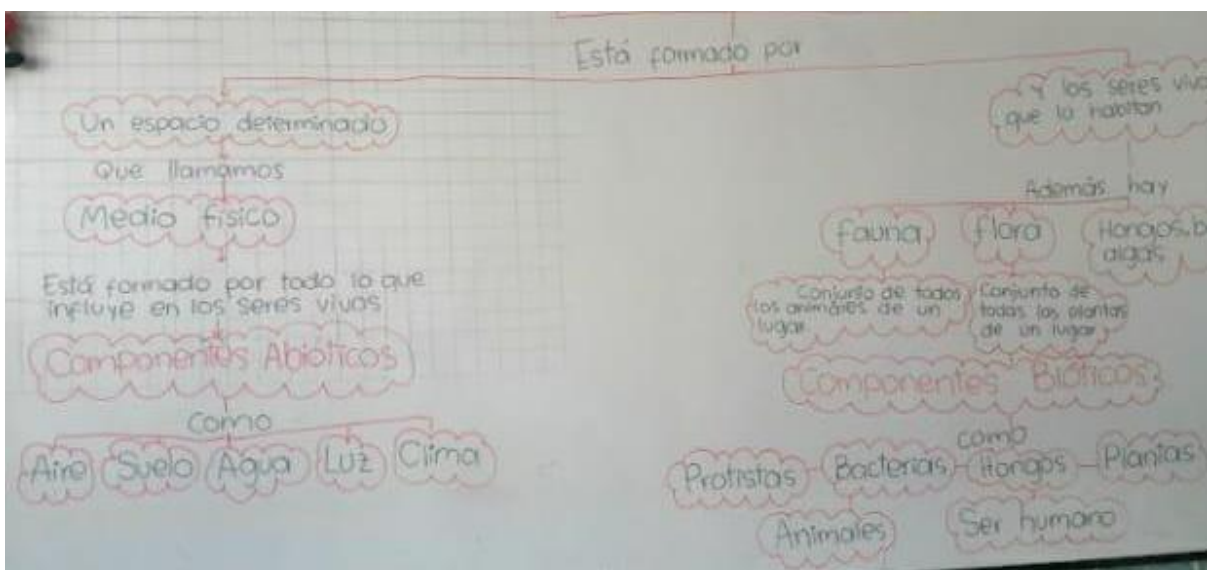 Está formado por
Un espacio determinado
Que llamamos
Medio físico
Está formado por todo lo que
influye en los seres vivos
Componentes Abióticos
como
Aire Suelo Agua Luz Clima
y los seres
que lo habitan
Además hay
Fauna Flora Hongos,
algas
Conjunto de todos
los animales de un
lugar
Conjunto de
todas las plantas
de un lugar
Componentes Bióticos
como
Protistas Bacterias Hongos Plantas
Animales Ser humano